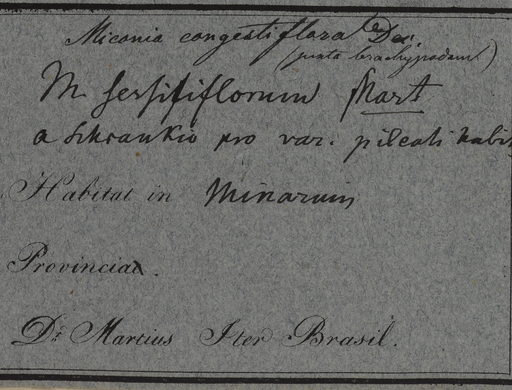 Miconia congestiflora Dec.
(juxta brachypodam)
M sessiliflorum Mart
a Schrankio pro var. pileati habit
Habitat in Minarum
Provincia.
Dr Martius Iter Brasil.